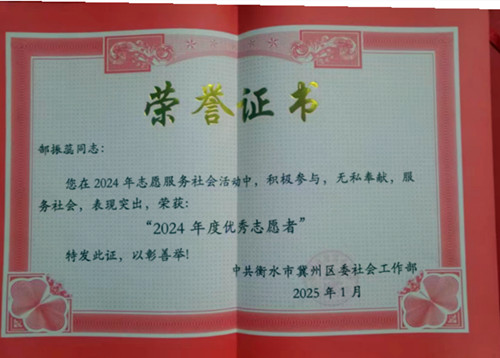 荣誉证书
郜振蕊同志：
您在2024年志愿服务社会活动中，积极参与，无私奉献，服
务社会，表现突出，荣获：
“2024 年度优秀志愿者”
特发此证，以彰善举！
中共衡水市冀州区委社会工作部
2025年1月